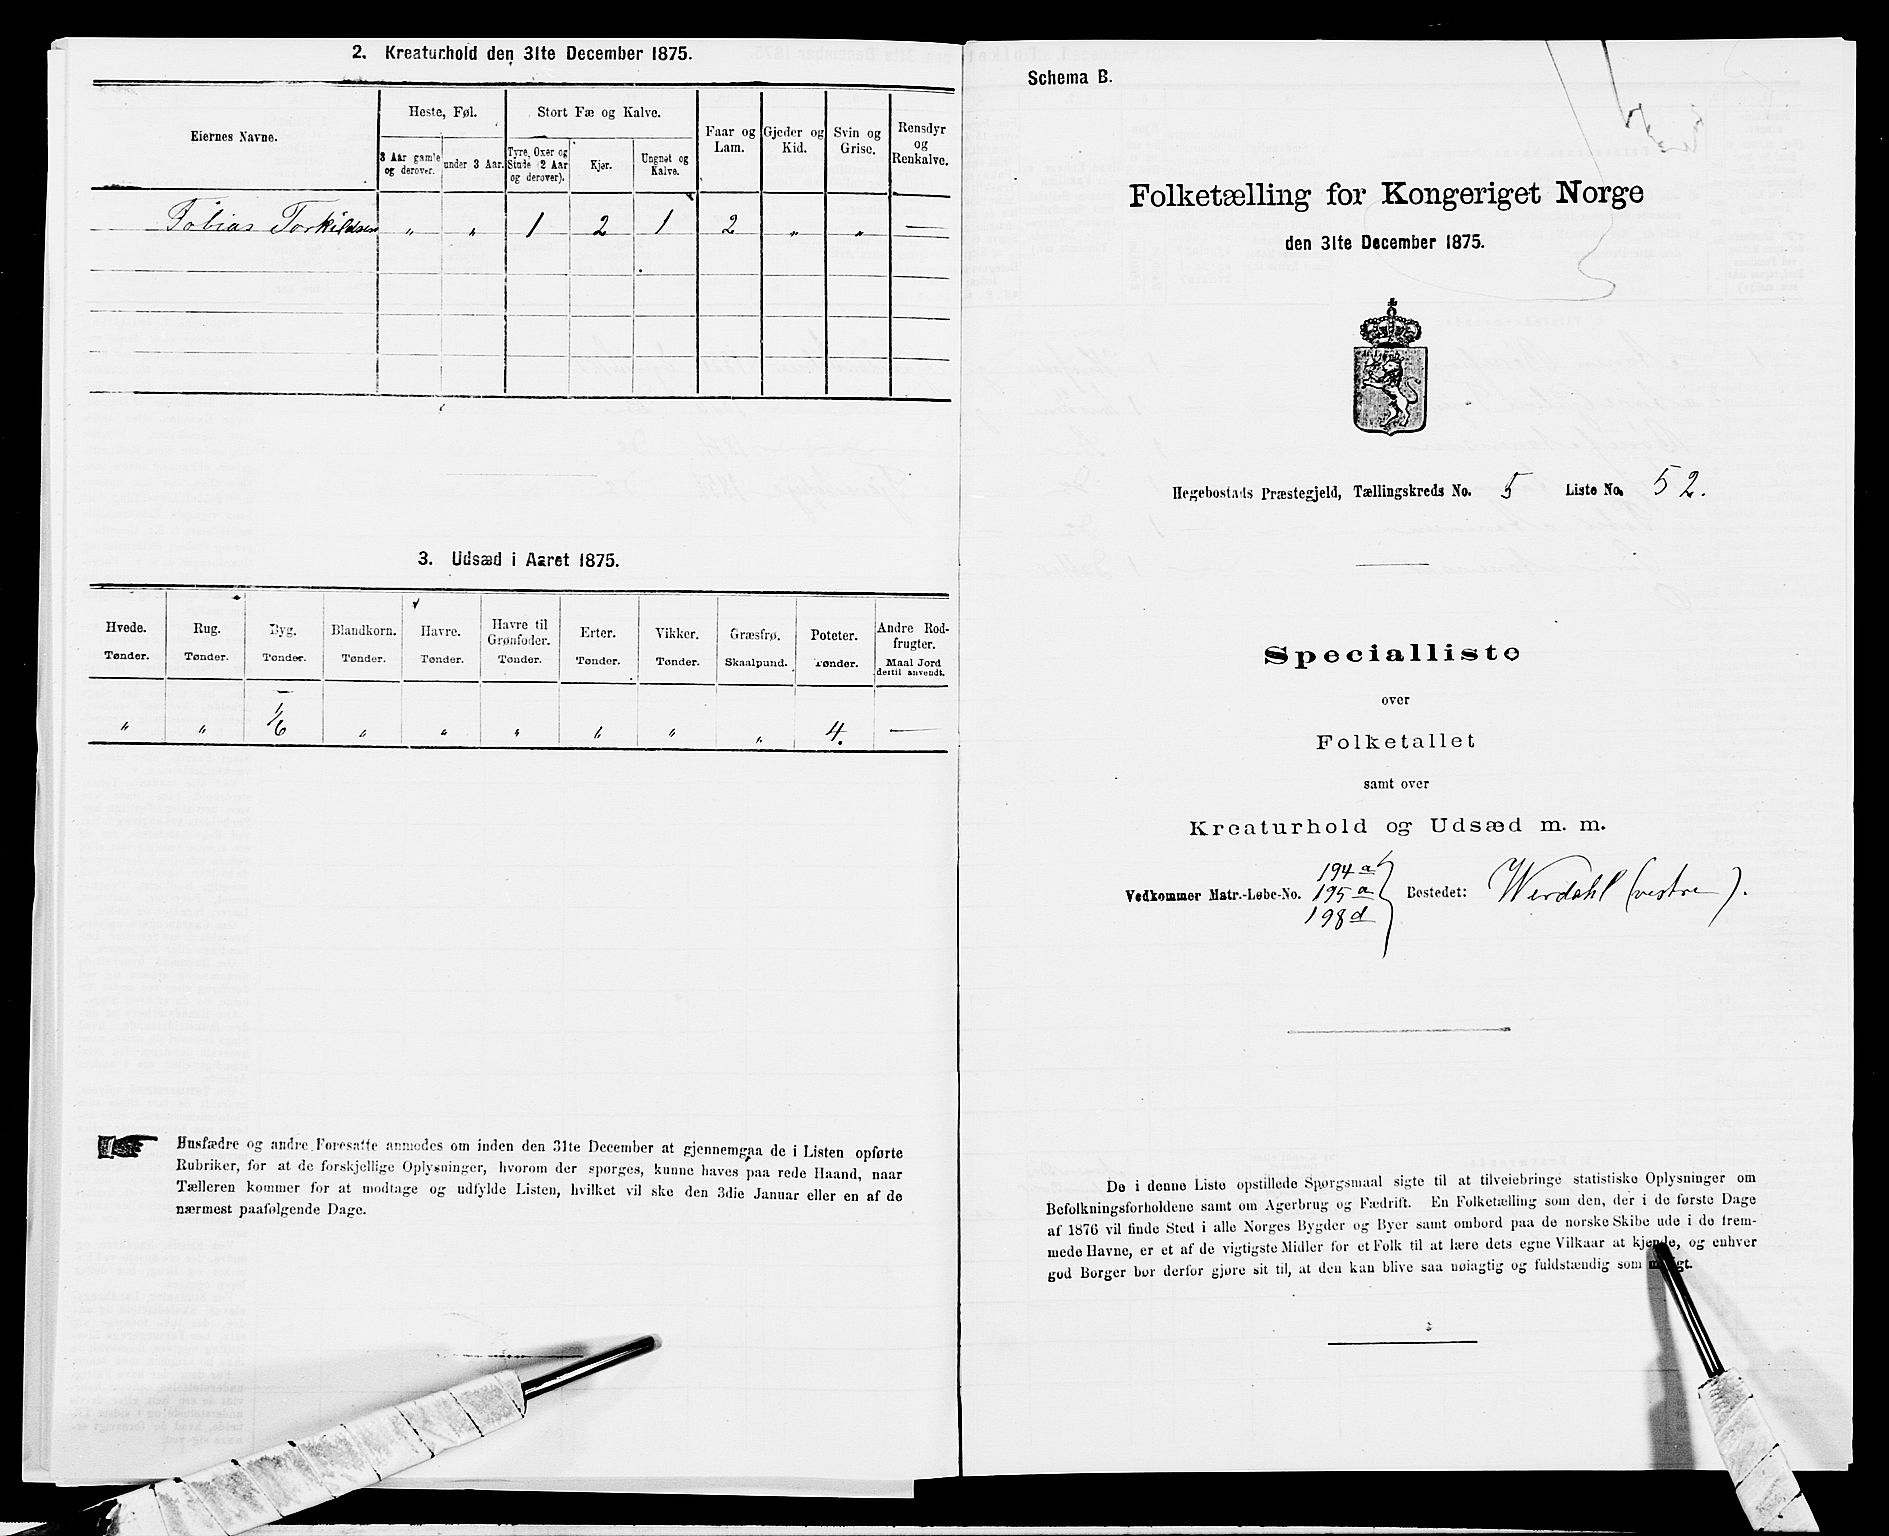 2. Kreaturhold den 31te December 1875.
Eiernes Navne.
Heste, Føl.
Stort Fæ og Kalve.
Faar og Lam.
Gjeder og Kid.
Svin og Grise.
Rensdyr og Renkalve.
3 Aar gamle og derover.
under 3 Aar.
Tyre, Oxer og Stude (2 Aar og derover).
Kjør.
Ungnøt og Kalve.
Tobias Torkildsen " " 1 2 1 2 " " —
3. Udsæd i Aaret 1875.
Hvede. Rug. Byg. Blandkorn. Havre. Havre til Grønfoder. Erter. Vikker. Græsfrø. Poteter. Andre Rodfrugter.
Tønder. Tønder. Tønder. Tønder. Tønder. Tønder. Tønder. Tønder. Skaalpund. Tønder. Maal Jord dertil anvendt.
" " 1/6 " " " " " " 4. —
Husfædre og andre Foresatte anmodes om inden den 31te December at gjennemgaa de i Listen opførte
Rubriker, for at de forskjellige Oplysninger, hvorom der spørges, kunne haves paa rede Haand, naar
Tælleren kommer for at modtage og udfylde Listen, hvilket vil ske den 3die Januar eller en af de
nærmest paafølgende Dage.
Schema B.
Folketælling for Kongeriget Norge
den 31te December 1875.
Hegebostads Præstegjeld, Tællingskreds No. 5 Liste No. 52.
Specialliste
over
Folketallet
samt over
Kreaturhold og Udsæd m. m.
194 a
Vedkommer Matr.-Løbe-No. 195 a Bostedet: Werdahl (vestre).
198 d
De i denne Liste opstillede Spørgsmaal sigte til at tilveiebringe statistiske Oplysninger om
Befolkningsforholdene samt om Agerbrug og Fædrift. En Folketælling som den, der i de første Dage
af 1876 vil finde Sted i alle Norges Bygder og Byer samt ombord paa de norske Skibe ude i de frem-
mede Havne, er et af de vigtigste Midler for et Folk til at lære dets egne Vilkaar at kjende, og enhver
god Borger bør derfor gjøre sit til, at den kan blive saa nøiagtig og fuldstændig som muligt.